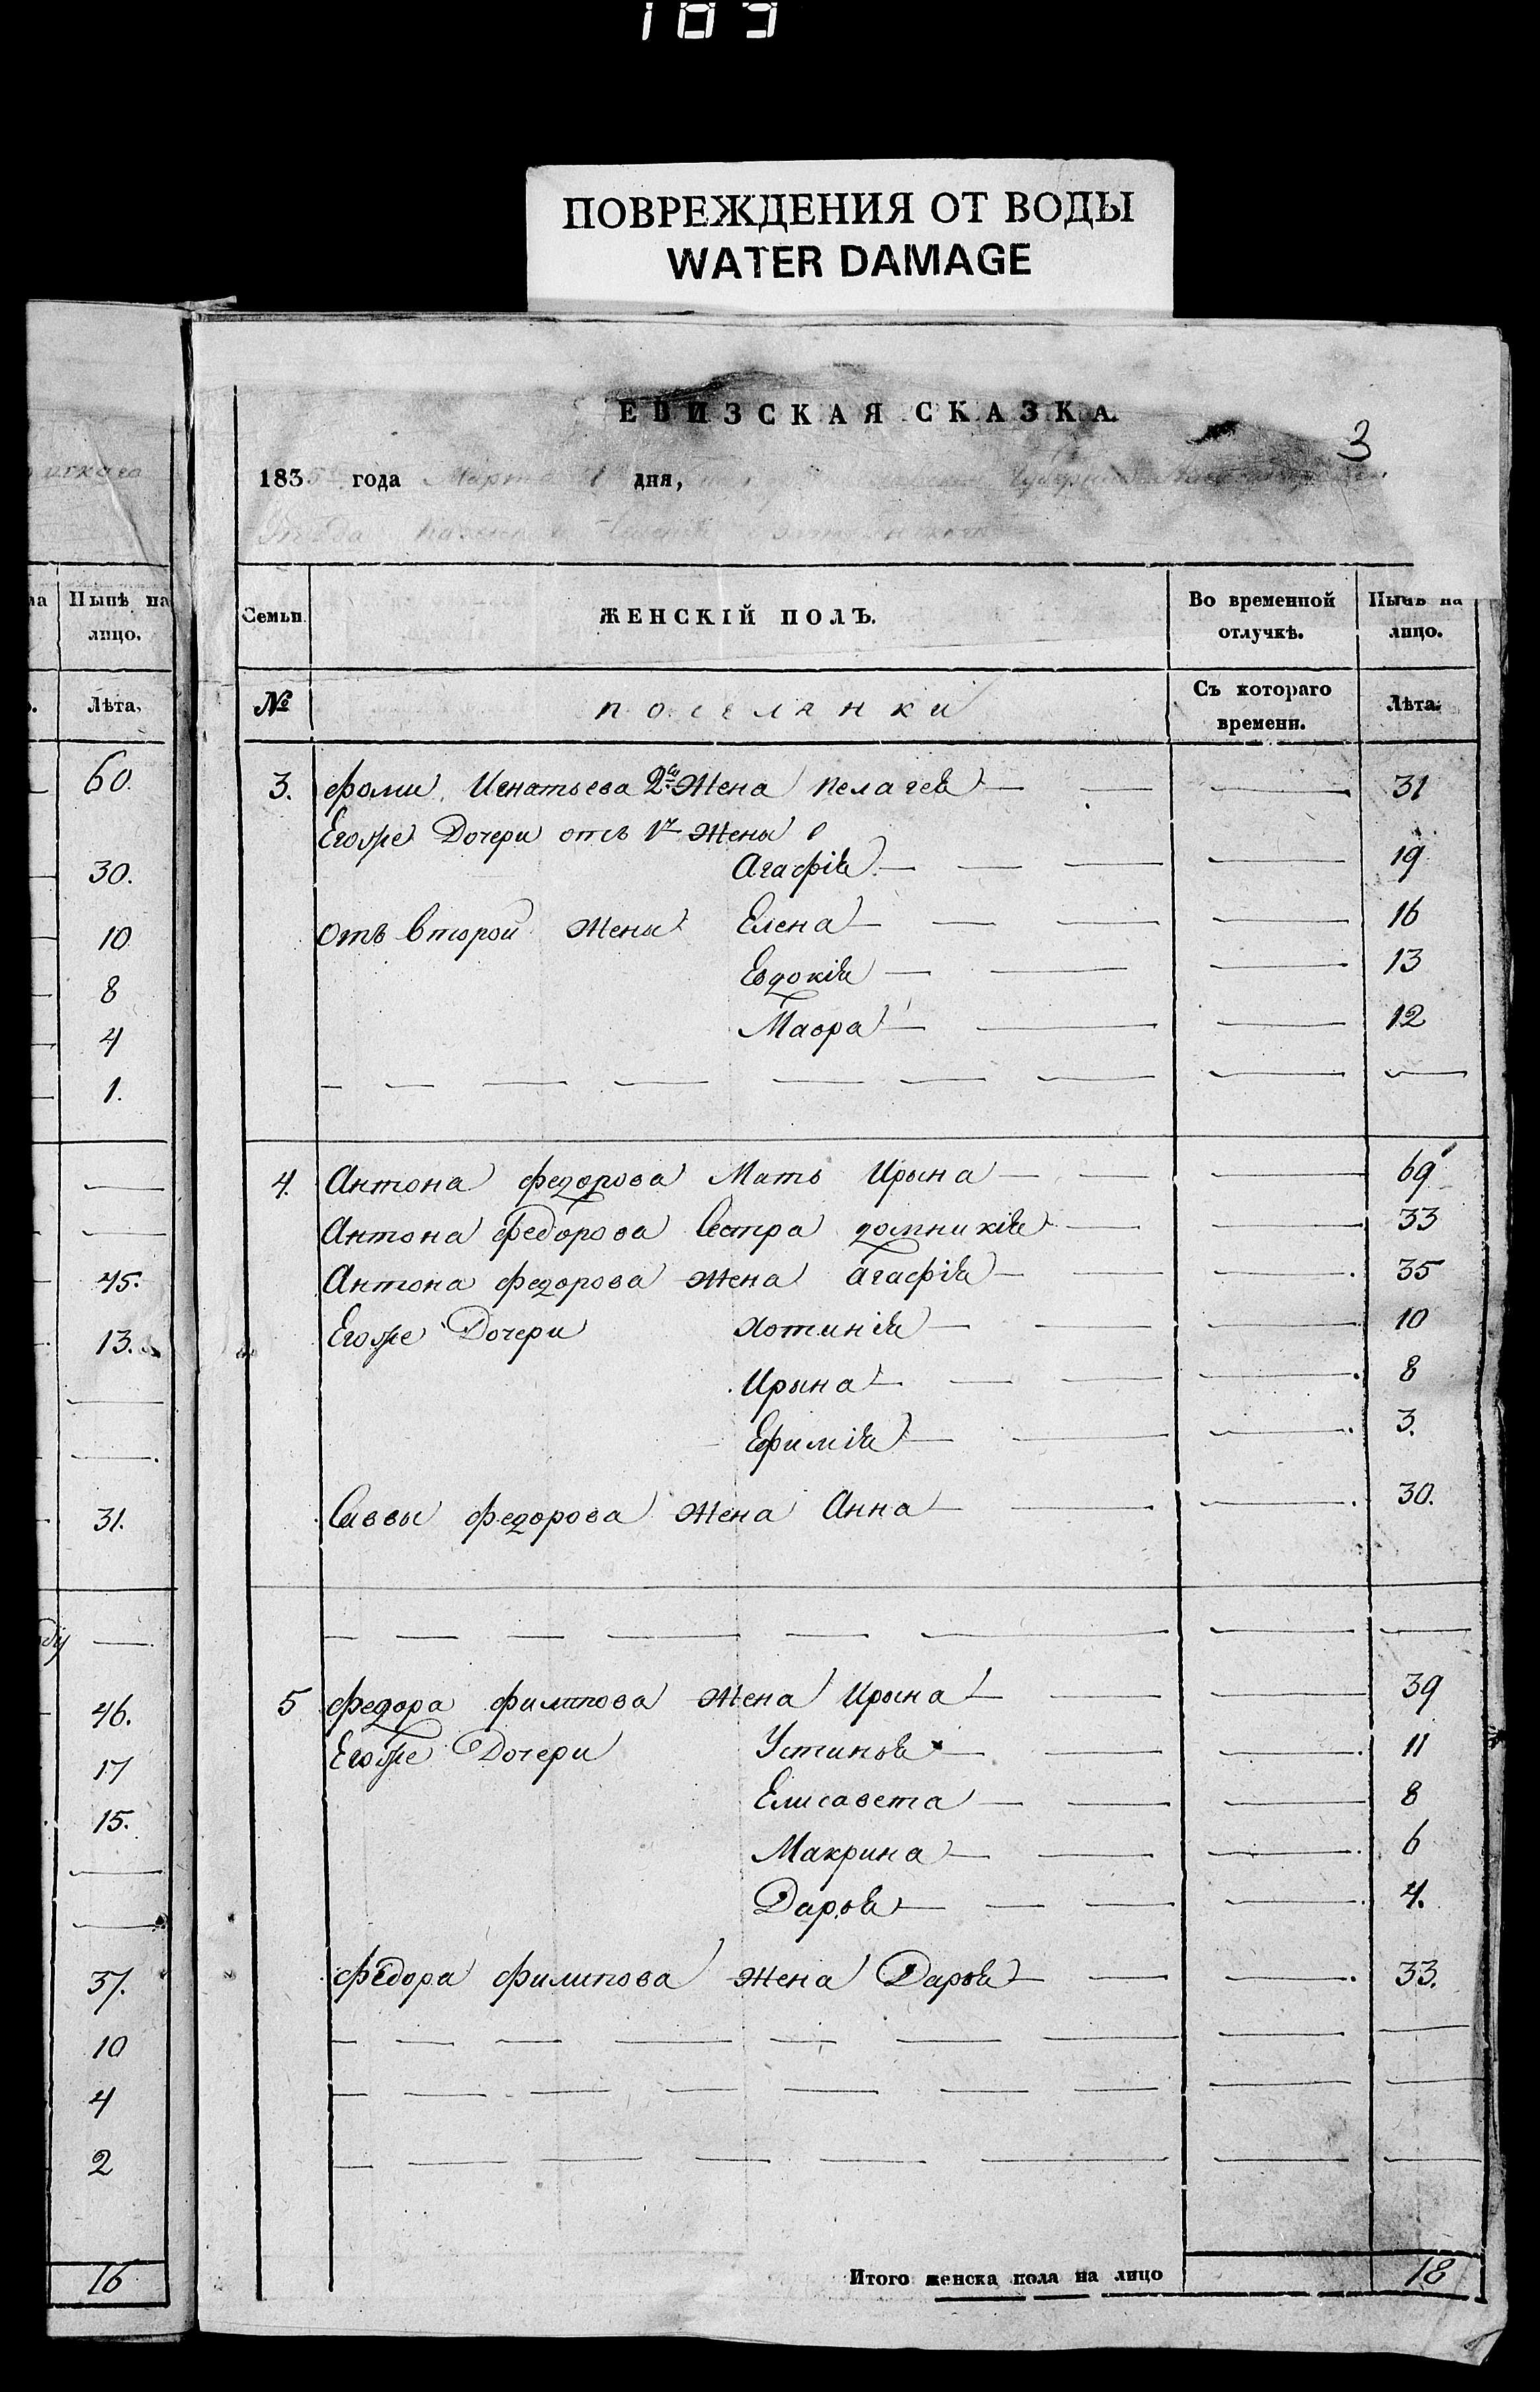 183
ПОВРЕЖДЕНИЯ ОТ ВОДЫ
WATER DAMAGE
ЕВИЗСКАЯ СКАЗКА.
3
1835 года Марта дня, Губерніи
Уѣзда
Нынѣ на
лицо.
Лѣта.
60.
30.
10
8
4
1.
45.
13.
31.
46.
17
15.
37.
10
4
2
16
Семьи.
ЖЕНСКІЙ ПОЛЪ.
Во временной
отлучкѣ.
Нынѣ на
лицо.
№
поселянки
Съ котораго
времени.
Лѣта.
3. Фомы Игнатьева 2я Жена Пелагея 31
Егоже Дочери отъ 1й Жены
Агафія 19
Отъ Второй Жены Елена 16
Евдокія 13
Мавра 12
4. Антона Федорова Мать Ирына 69
Антона Федорова Сестра Домникія 33
Антона Федорова Жена Агафія 35
Егоже Дочери Хотинія 10
Ирына 8
Ефимія 3.
Саввы Федорова Жена Анна 30.
5 Федора Филипова Жена Ирына 39
Егоже Дочери Устинья 11
Елисавета 8
Макрина 6
Дарья 4.
Федора Филипова Жена Дарья 33.
Итого женска пола на лицо 18